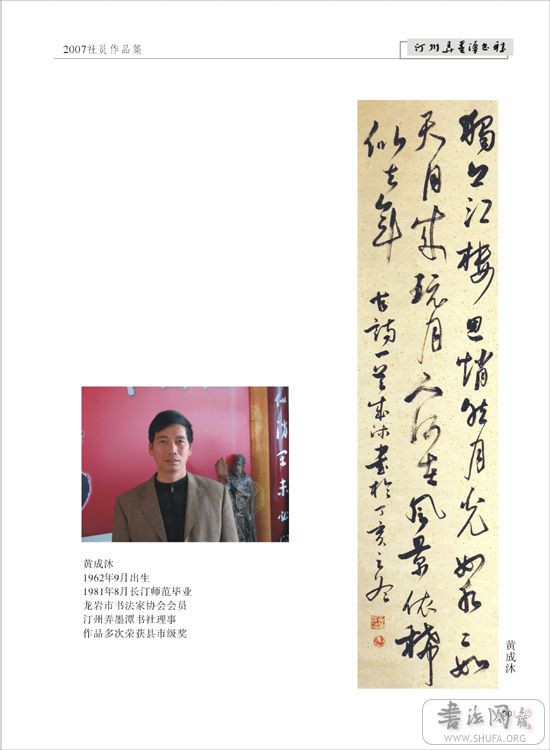 2007社员作品集
汀州弄墨潭书社
獨上江樓思悄然月光如水〻如
天同來玩月人何在風景依稀
似去年
古詩一首成沐書於丁亥之冬
黄成沐
1962年9月出生
1981年8月长汀师范毕业
龙岩市书法家协会会员
汀州弄墨潭书社理事
作品多次荣获县市级奖
黄成沐
書法网
WWW.SHUFA.ORG